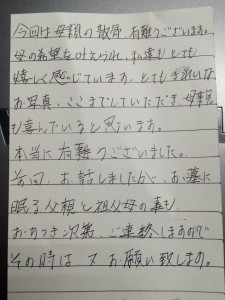 今回は母親の散骨、有難うございます。
母の希望を叶えられ、私達もとても
嬉しく感じています。とてもきれいな
お写真、ここまでしていただき、母親自身
も喜んでいると思います。
本当に有難うございました。
前回、お話しましたが、お墓に
眠る父親と祖父母の事も
おちつき次第、ご連絡しますので
その時は又お願い致します。